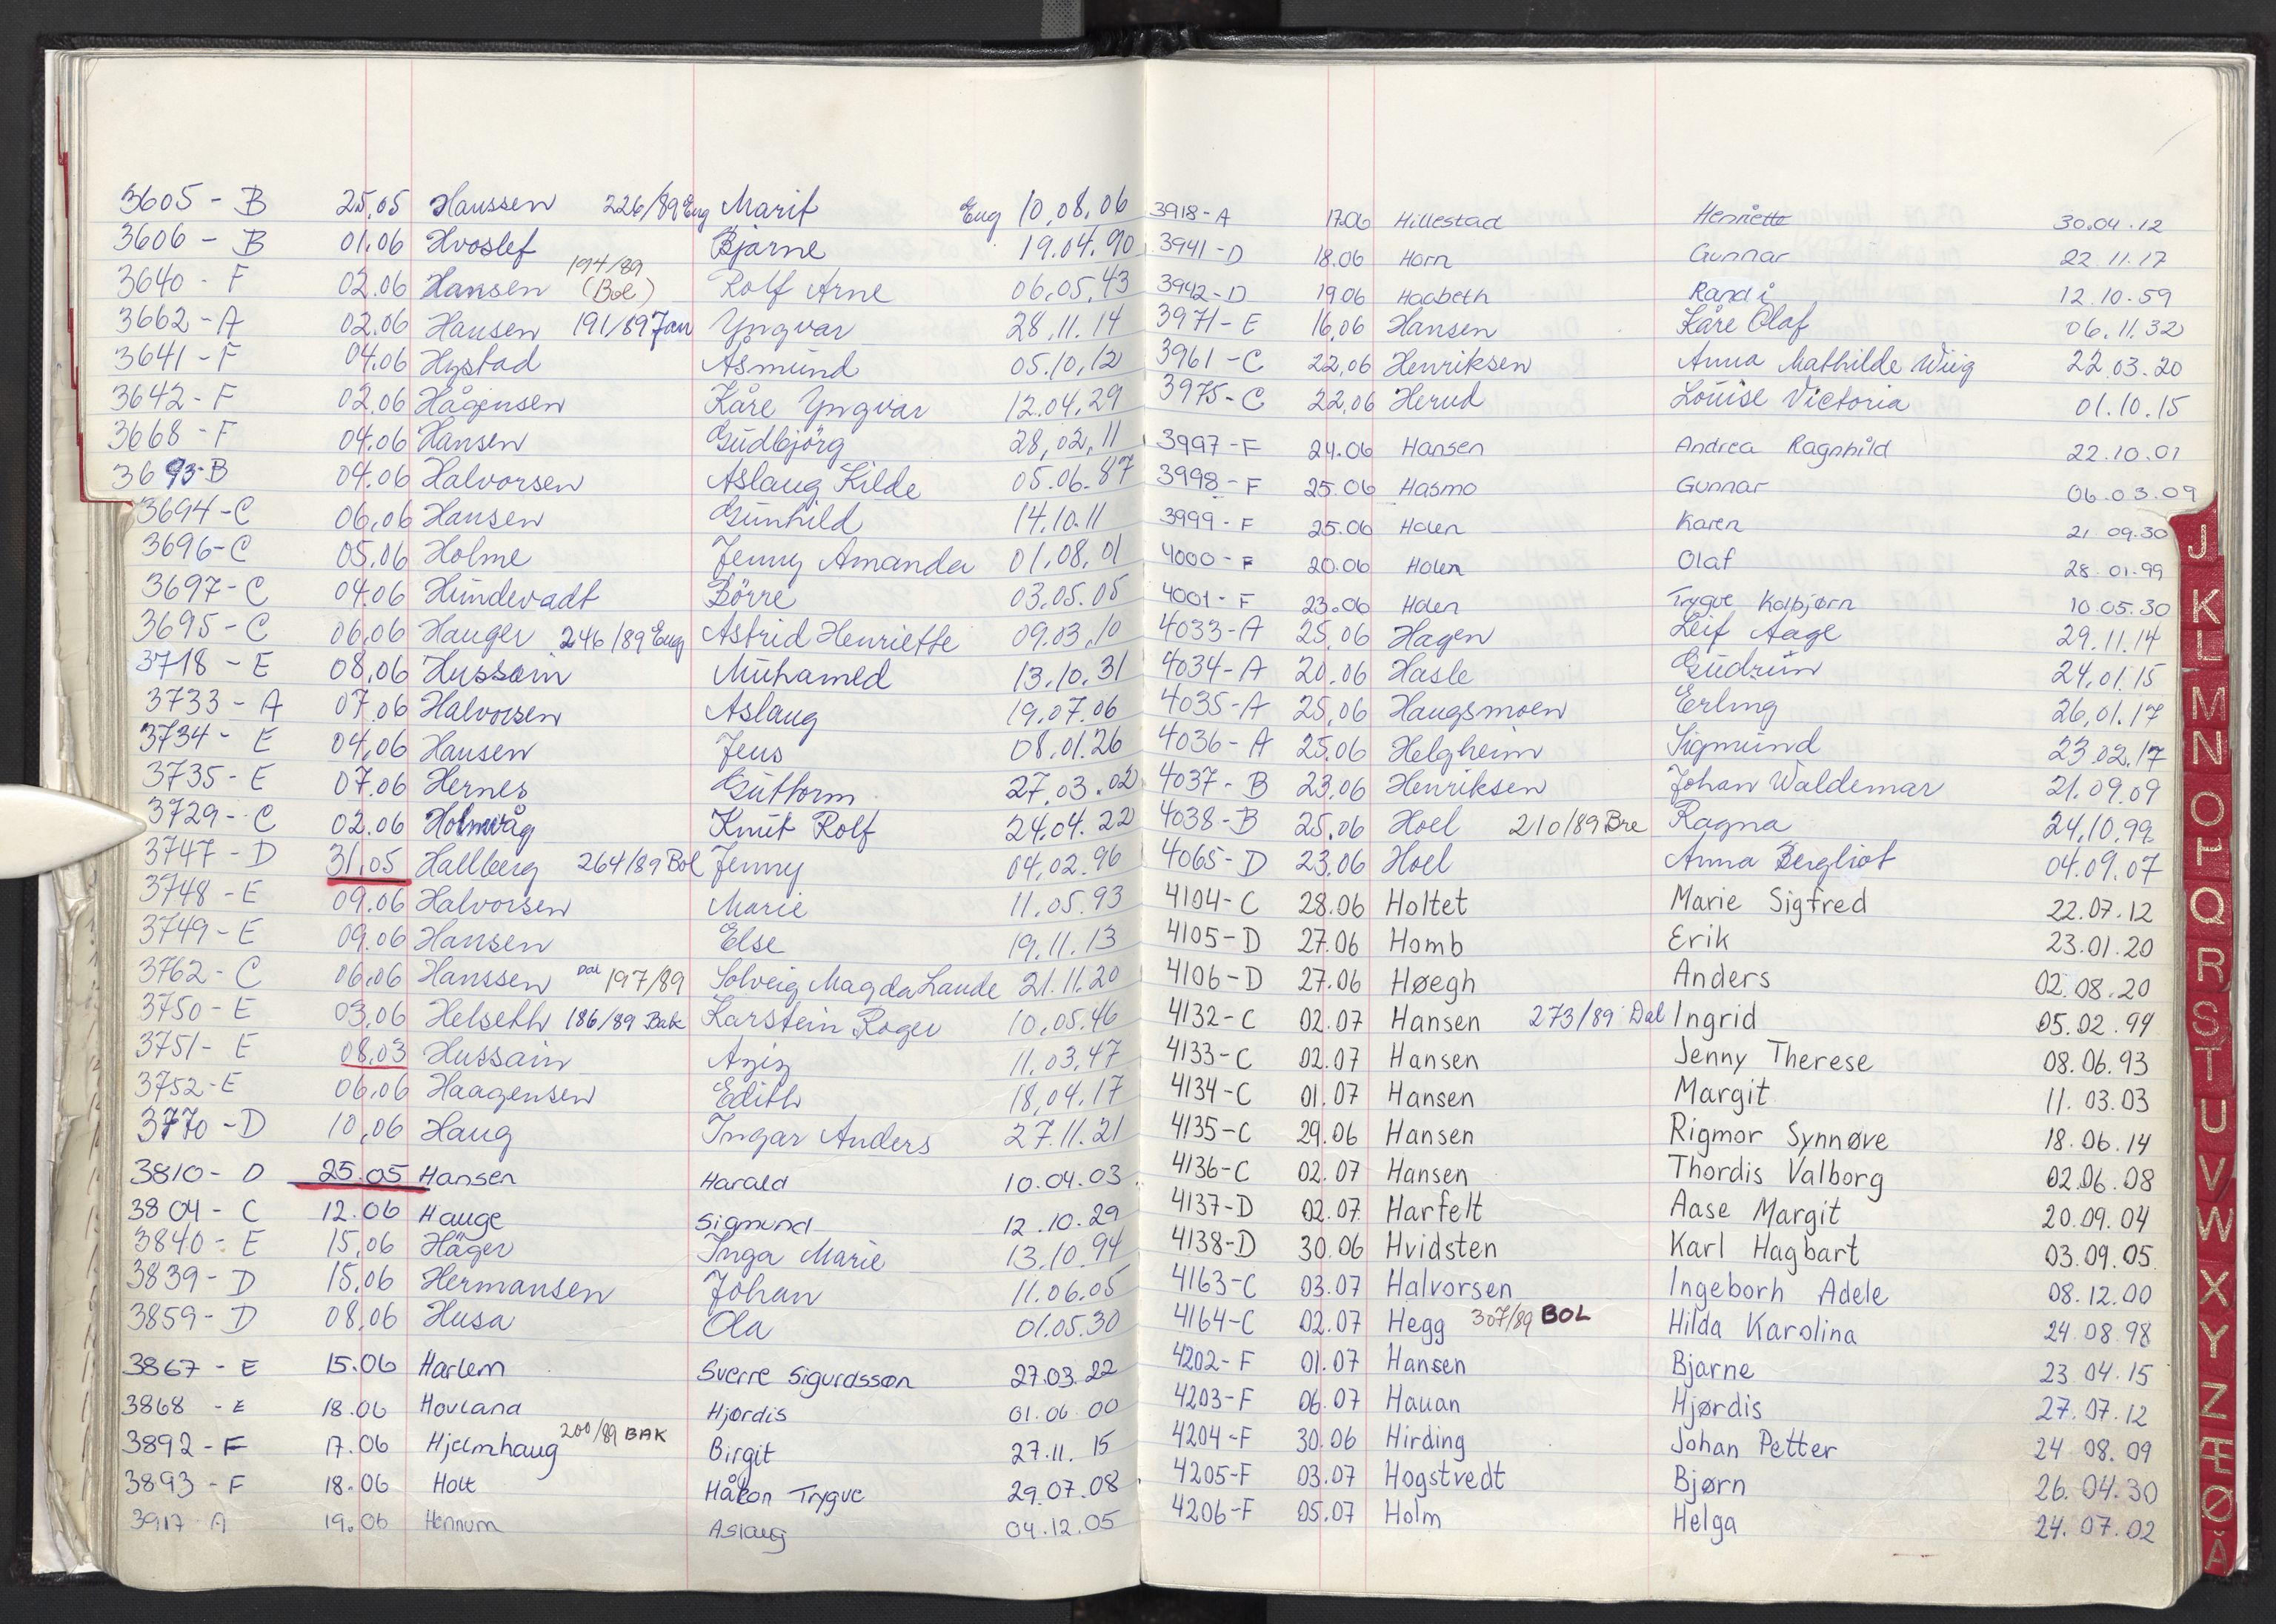 3605 - B 25.05 Hanssen 226/89 Eng Marit Eug 10.08.06
3606 - B 01.06 Hvoslef Bjarne 19.04.90
3640 - F 02.06 Hansen 194/89 (Bol) Rolf Arne 06.05.43
3662 - A 02.06 Hansen 191/89 Jan Yngvar 28.11.14
3641 - F 04.06 Hystad Asmund 05.10.12
3642 - F 02.06 Hågensen Kåre Yngvar 12.04.29
3668 - F 04.06 Hansen Gudbjörg 28.02.11
3693 - B 04.06 Halvorsen Aslaug Kilde 05.06.87
3694 - C 06.06 Hansen Gunhild 14.10.11
3696 - C 05.06 Holme Jenny Amanda 01.08.01
3697 - C 04.06 Hundevadt Börre 03.05.05
3695 - C 06.06 Hauger 246/89 Eug Astrid Henriette 09.03.10
3718 - E 08.06 Hussain Muhamed 13.10.31
3733 - A 07.06 Halvorsen Aslaug 19.07.06
3734 - E 04.06 Hansen Jens 08.01.26
3735 - E 07.06 Hernes Guttorm 27.03.02
3729 - C 02.06 Holmvåg Knut Rolf 24.04.22
3747 - D 31.05 Hallberg 264/89 Bol Jenny 04.02.96
3748 - E 09.06 Halvorsen Marie 11.05.93
3749 - E 09.06 Hansen Else 19.11.13
3762 - C 06.06 Hanssen Dal 197/89 Solveig Magda Lande 21.11.20
3750 - E 03.06 Helseth 186/89 Bak Karstein Roger 10.05.46
3751 - E 08.03 Hussain Aziz 11.03.47
3752 - E 06.06 Haagensen Edith 18.04.17
3770 - D 10.06 Haug Ingar Anders 27.11.21
3810 - D 25.05 Hansen Harald 10.04.03
3804 - C 12.06 Hauge Sigmund 12.10.29
3840 - E 15.06 Häger Inga Marie 13.10.94
3839 - D 15.06 Hermansen Johan 11.06.05
3859 - D 08.06 Husa Ola 01.05.30
3867 - E 15.06 Harlem Sverre Sigurdssøn 27.03.22
3868 - E 18.06 Hovland Hjørdis 01.06.00
3892 - F 17.06 Hjelmhaug 200/89 BAK Birgit 27.11.15
3893 - F 18.06 Holt Håkon Trygve 29.07.08
3917 A 19.06 Hennum Aslaug 04.12.05
3918 - A 17.06 Hillestad Henriette 30.04.12
3941 - D 18.06 Horn Gunnar 22.11.17
3942 - D 19.06 Haabeth Randi 12.10.59
3971 - E 16.06 Hansen Kåre Olaf 06.11.32
3961 - C 22.06 Henriksen Anna Mathilde Wiig 22.03.20
3975 - C 22.06 Herud Louise Victoria 01.10.15
3997 - F 24.06 Hansen Andrea Ragnhild 22.10.01
3998 - F 25.06 Hasmo Gunnar 06.03.09
3999 - F 25.06 Holen Karen 21.09.30
4000 - F 20.06 Holen Olaf 28.01.99
4001 - F 23.06 Holen Trygve Kolbjørn 10.05.30
4033 - A 25.06 Hagen Leif Aage 29.11.14
4034 - A 20.06 Hasle Gudrun 24.01.15
4035 - A 25.06 Haugsmoen Erling 26.01.17
4036 - A 25.06 Helgheim Sigmund 23.02.17
4037 - B 23.06 Henriksen Johan Waldemar 21.09.09
4038 - B 25.06 Hoel 210/89 Bre Ragna 24.10.99
4065 - D 23.06 Hoel Anna Bergliot 04.09.07
4104 - C 28.06 Holtet Marie Sigfred 22.07.12
4105 - D 27.06 Homb Erik 23.01.20
4106 - D 27.06 Høegh Anders 02.08.20
4132 - C 02.07 Hansen 273/89 Dal Ingrid 05.02.94
4133 - C 02.07 Hansen Jenny Therese 08.06.93
4134 - C 01.07 Hansen Margit 11.03.03
4135 - C 29.06 Hansen Rigmor Synnøve 18.06.14
4136 - C 02.07 Hansen Thordis Valborg 02.06.08
4137 - D 02.07 Harfelt Aase Margit 20.09.04
4138 - D 30.06 Hvidsten Karl Hagbart 03.09.05
4163 - C 03.07 Halvorsen Ingeborh Adele 08.12.00
4164 - C 02.07 Hegg 307/89 BOL Hilda Karolina 24.08.98
4202 - F 01.07 Hansen Bjarne 23.04.15
4203 - F 06.07 Hauan Hjørdis 27.07.12
4204 - F 30.06 Hirding Johan Petter 24.08.09
4205 - F 03.07 Hogstvedt Bjørn 26.04.30
4206 - F 05.07 Holm Helga 24.07.02
J
K
L
M
N
O
P
Q
R
S
T
U
V
W
X
Y
Z
Æ
Ø
Å